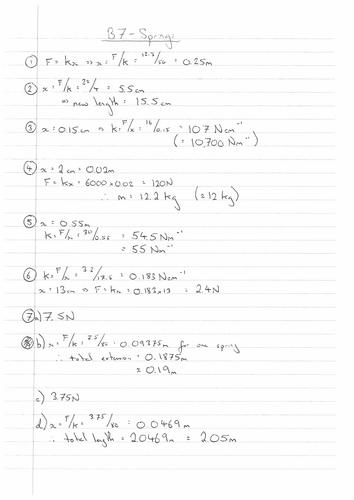 B7 - Springs
① F = kx ⇒ x = F/k = 12.5/50 = 0.25m
② x = F/k = 22/4 = 5.5cm
⇒ new length = 15.5cm
③ x = 0.15cm ⇒ k = F/x = 16/0.15 = 107 Ncm⁻¹
(= 10,700 Nm⁻¹)
④ x = 2cm = 0.02m
F = kx = 6000 × 0.02 = 120N
∴ m = 12.2 kg (≈12 kg)
⑤ x = 0.55m
k = F/x = 30/0.55 = 54.5 Nm⁻¹
= 55 Nm⁻¹
⑥ k = F/x = 3.2/17.5 = 0.183 Ncm⁻¹
x = 13cm ⇒ F = kx = 0.183×13 = 2.4N
⑦ a) 7.5N
b) x = F/k = 7.5/80 = 0.09375m for one spring
∴ total extension = 0.1875m
= 0.19m
c) 3.75N
d) x = F/k = 3.75/80 = 0.0469m
∴ total length = 2.0469m = 2.05m